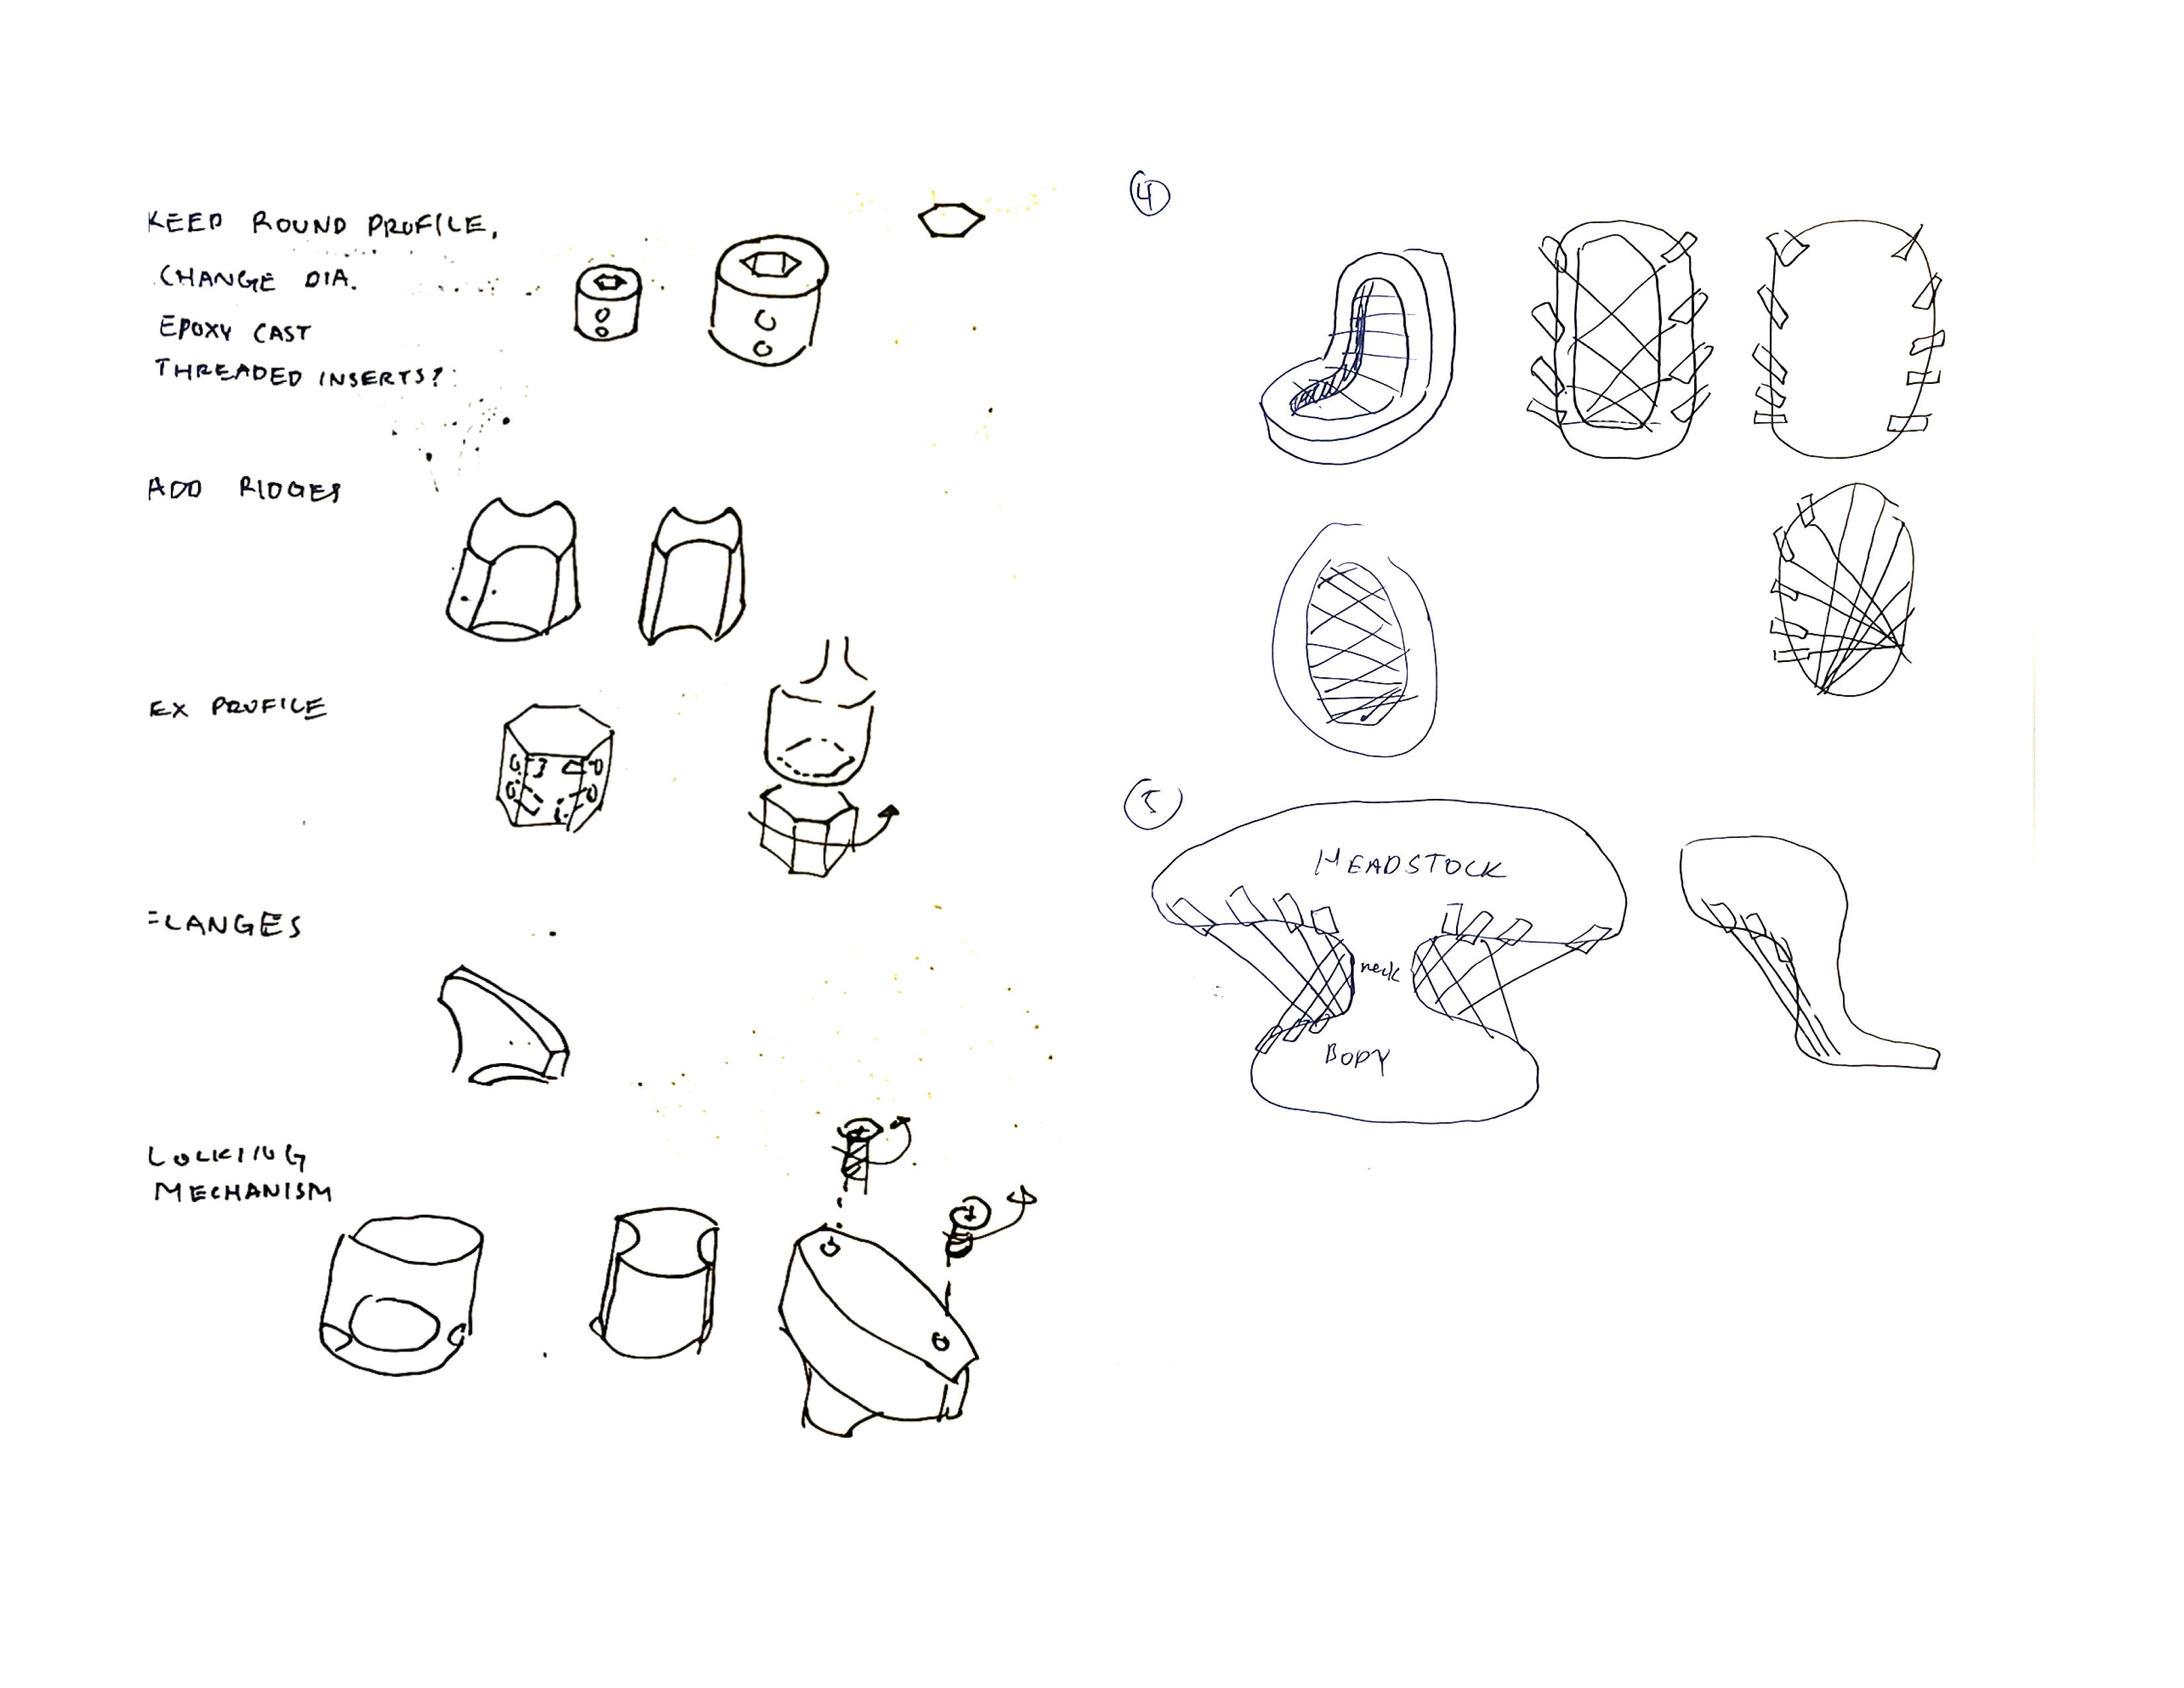 KEEP ROUND PROFILE,
CHANGE DIA.
EPOXY CAST
THREADED INSERTS?
ADD RIDGES
EX PROFILE
FLANGES
LOCKING
MECHANISM
4
5
HEADSTOCK
neck
BODY